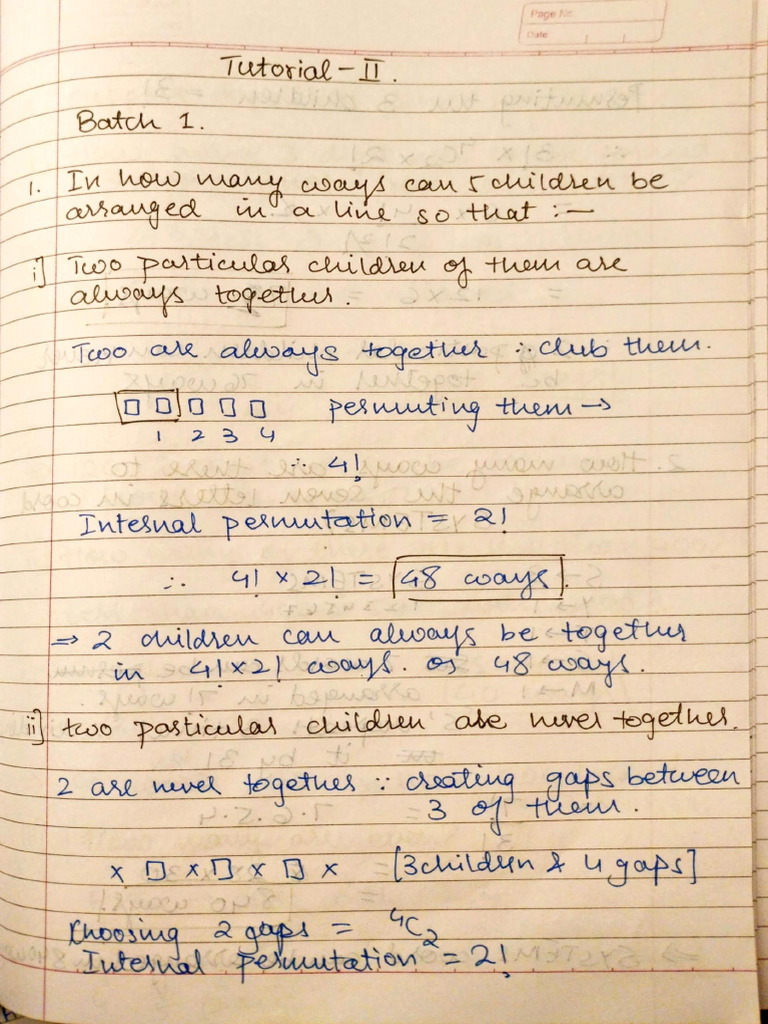 Page No.
Date
Tutorial - II.
Batch 1.
1. In how many ways can 5 children be
arranged in a line so that :-
i] Two particular children of them are
always together.
Two are always together ∴ club them.
permuting them →
1 2 3 4
∴ 4!
Internal permutation = 2!
∴ 4! × 2! = 48 ways.
⇒ 2 children can always be together
in 4! × 2! ways. or 48 ways.
ii] two particular children are never together.
2 are never together ∵ creating gaps between
3 of them.
× □ × □ × □ × [3 children & 4 gaps]
Choosing 2 gaps = ⁴C₂
Internal permutation = 2!